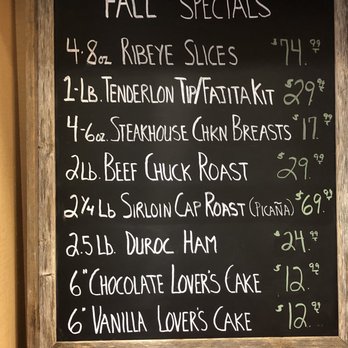 FALL SPECIALS
4-8oz RIBEYE SLICES $74.99
1-LB. TENDERLON TIP/FAJITA KIT $29.99
4-6oz. STEAKHOUSE CHKN BREASTS $17.99
2LB. BEEF CHUCK ROAST $29.99
2 1/4 Lb SIRLOIN CAP ROAST (PICAÑA) $69.99
2.5 Lb. DUROC HAM $24.99
6" CHOCOLATE LOVER'S CAKE $12.99
6" VANILLA LOVER'S CAKE $12.99